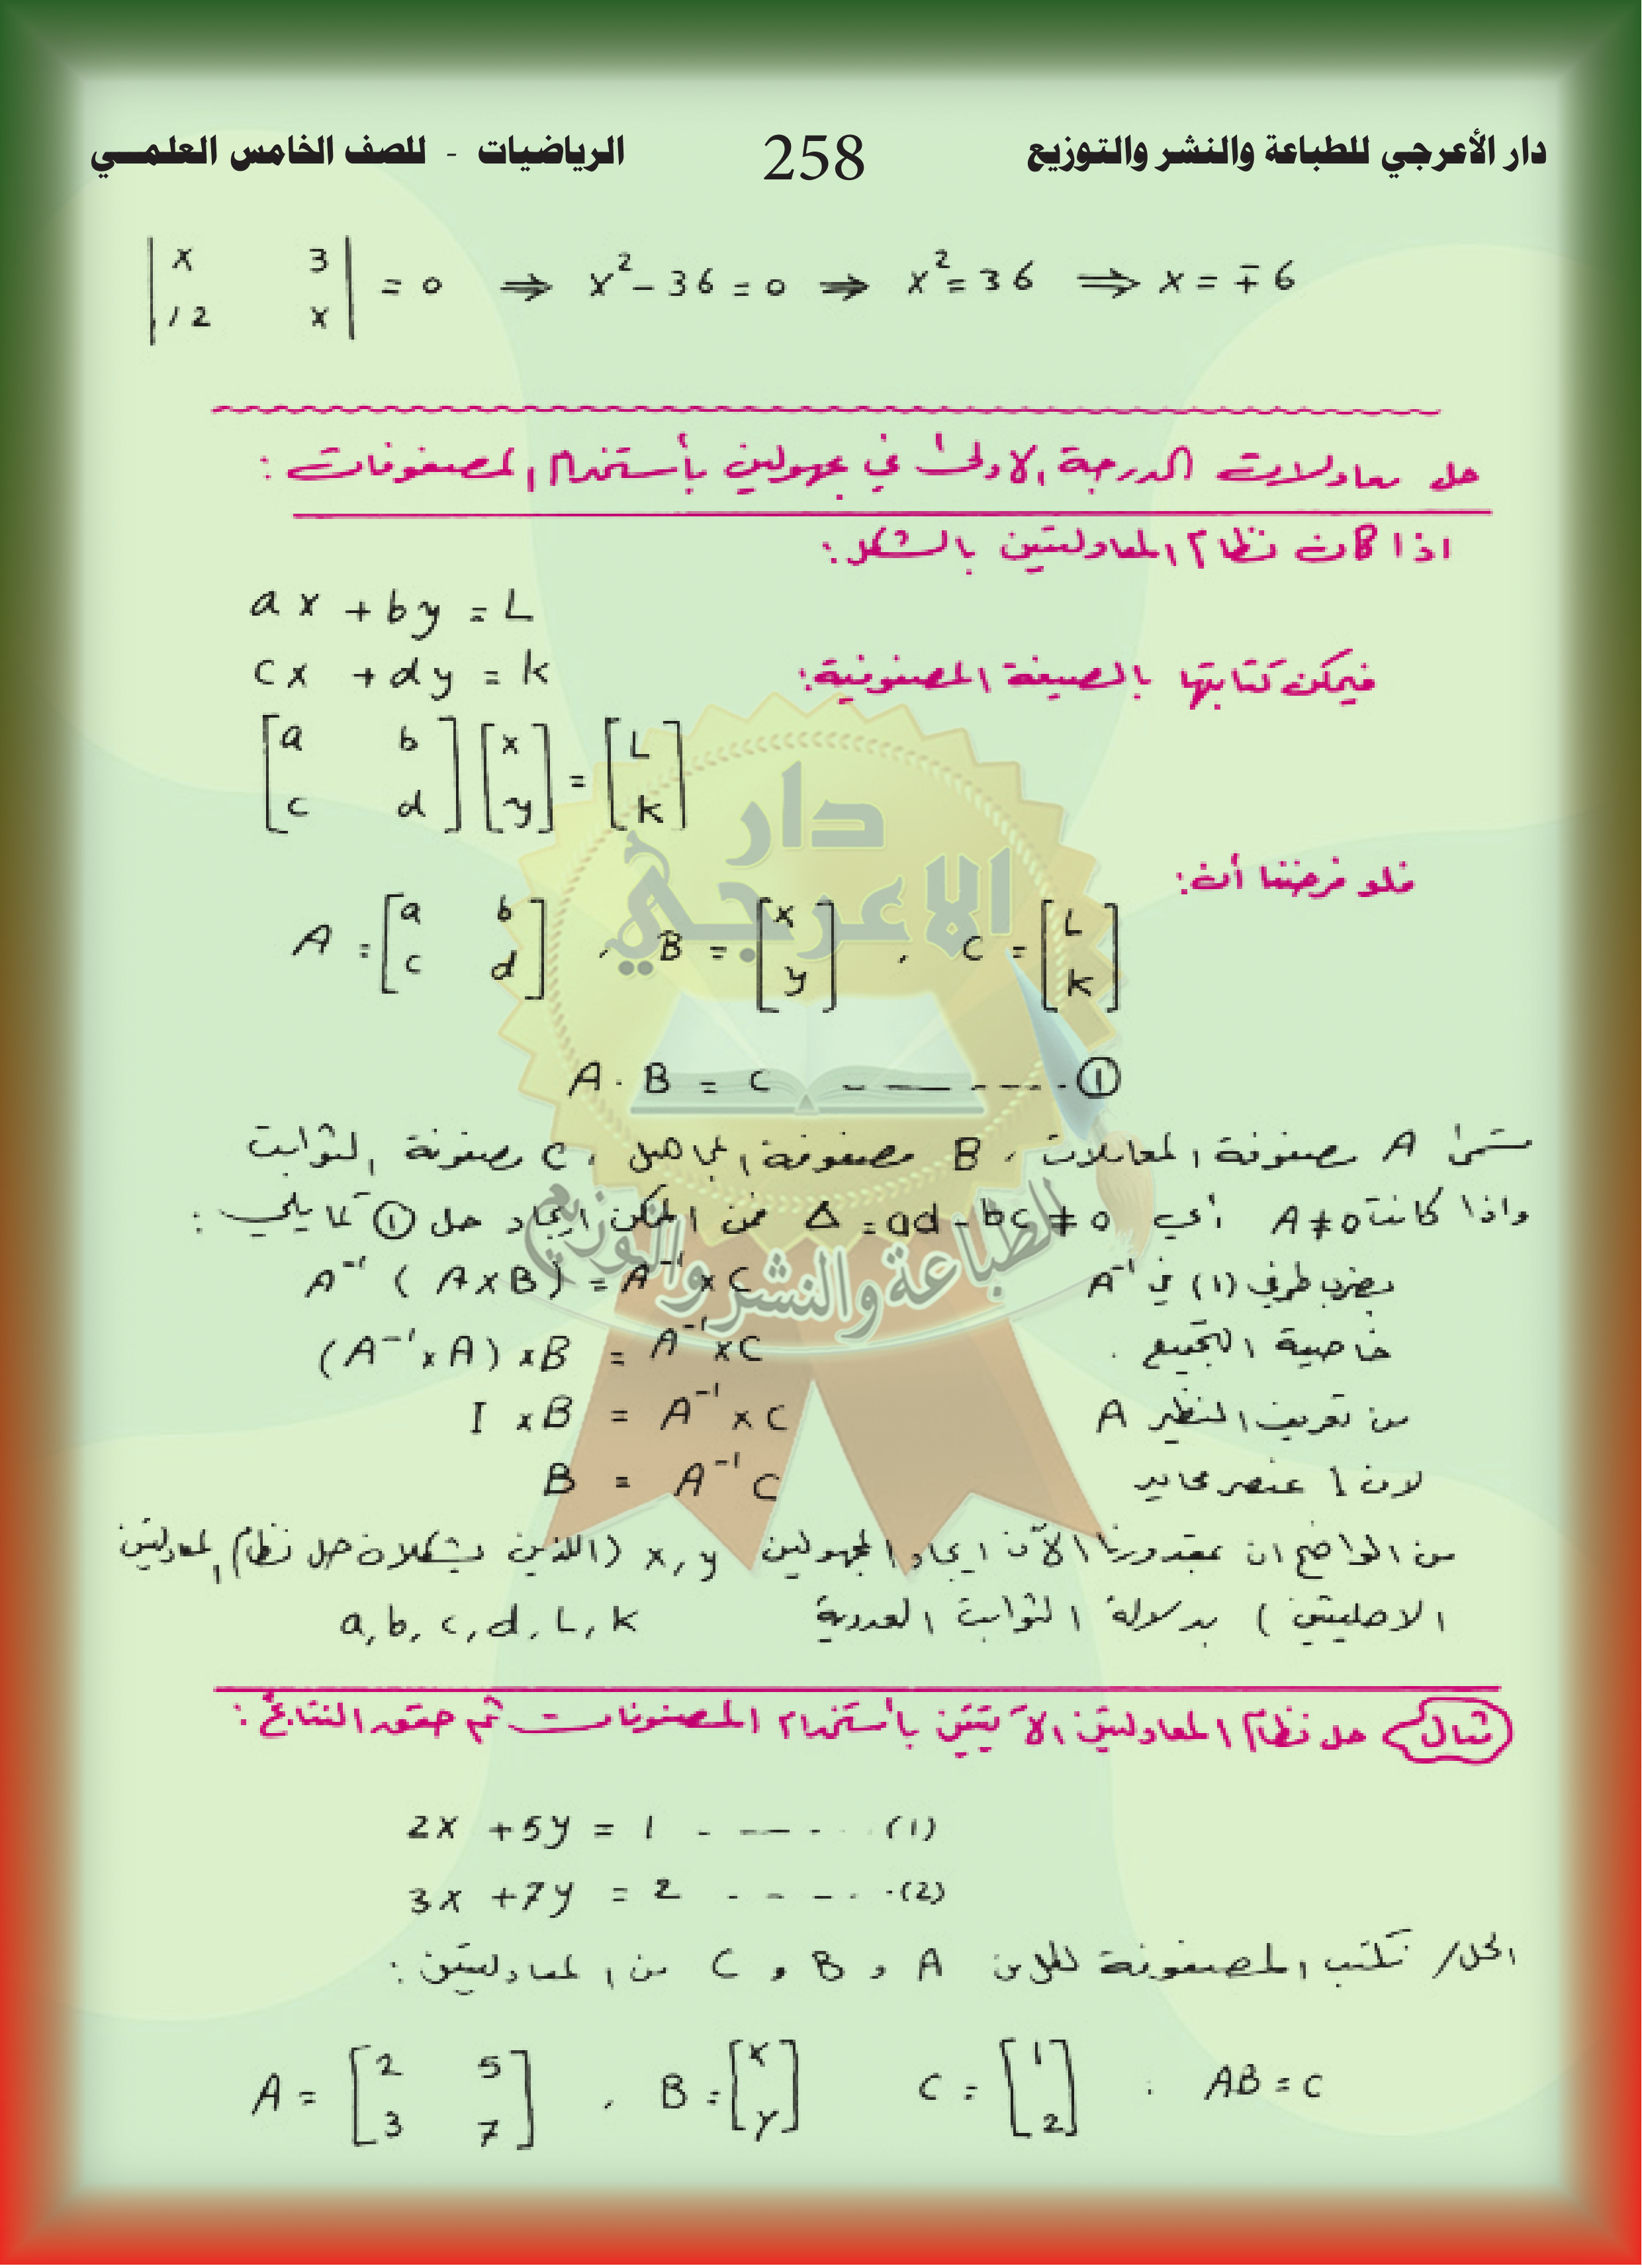 دار الأعرجي للطباعة والنشر والتوزيع 258 الرياضيات - للصف الخامس العلمي
| x 3 |
| 12 x | = 0 ⇒ x² - 36 = 0 ⇒ x² = 36 ⇒ x = ∓ 6
حل معادلات الدرجة الاولى في مجهولين بأستخدام المصفوفات :
اذا كان نظام المعادلتين بالشكل :
ax + by = L
cx + dy = k
فيمكن كتابتها بالصيغة المصفوفية :
[a b] [x] = [L]
[c d] [y] = [k]
فلو فرضنا أن :
A = [a b] ، B = [x] ، C = [L]
[c d] [y] [k]
A . B = C - - - - - - ①
دار
الاعرجي
للطباعة والنشر والتوزيع
A مصفوفة المعاملات ، B مصفوفة المجاهيل ، C مصفوفة الثوابت
واذا كانت A ≠ 0 أي Δ = ad - bc ≠ 0 فمن الممكن ايجاد حل ① كما يلي :
A⁻¹ ( A × B ) = A⁻¹ × C بضرب طرفي (1) في A⁻¹
(A⁻¹ × A) × B = A⁻¹ × C خاصية التجميع .
I × B = A⁻¹ × C من تعريف النظير A
B = A⁻¹ C لان I عنصر محايد
من الواضح ان بمقدورنا الآن ايجاد المجهولين x , y (اللذين يشكلان حل نظام المعادلتين
الاصليتين ) بدلالة الثوابت العددية a, b, c, d, L, k
مثال حل نظام المعادلتين الآتيتين بأستخدام المصفوفات ثم حقق النتائج :
2x + 5y = 1 - - - - - (1)
3x + 7y = 2 - - - - - (2)
الحل/ نكتب المصفوفة لكل من A و B و C من المعادلتين :
A = [2 5] ، B = [x] C = [1] ، AB = C
[3 7] [y] [2]